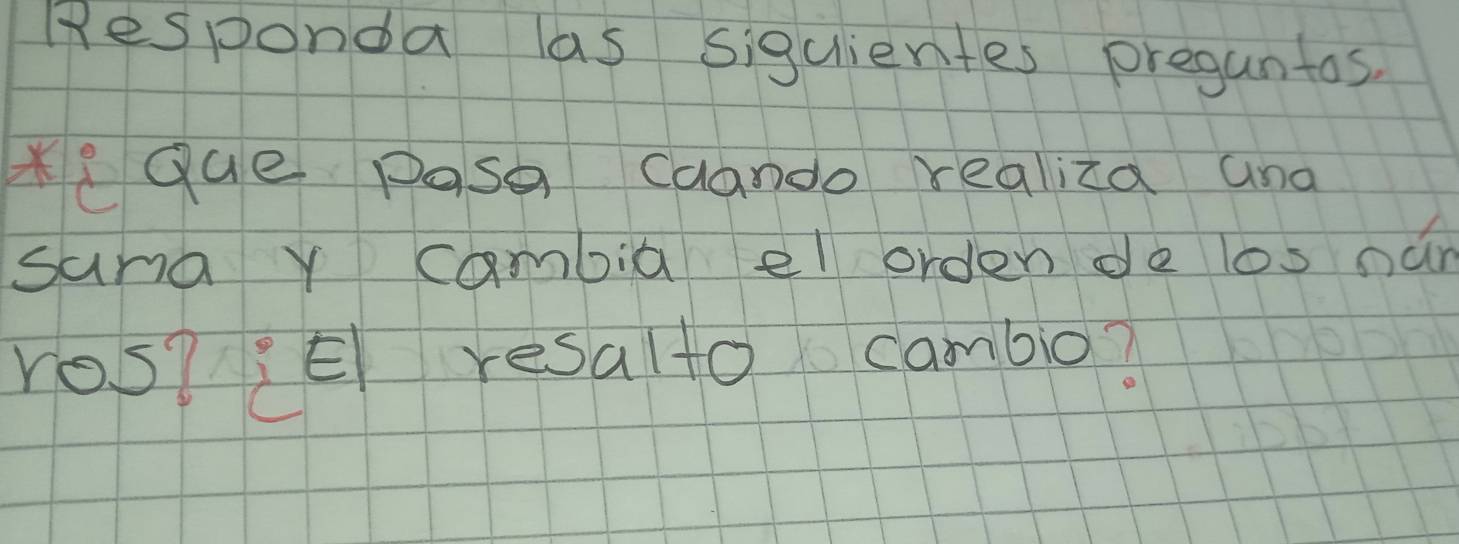 Responda las siguientes preguntas.
*¿Que pasa cuando realiza una
suma y cambia el orden de los núm
ros? ¿El resulto cambio?